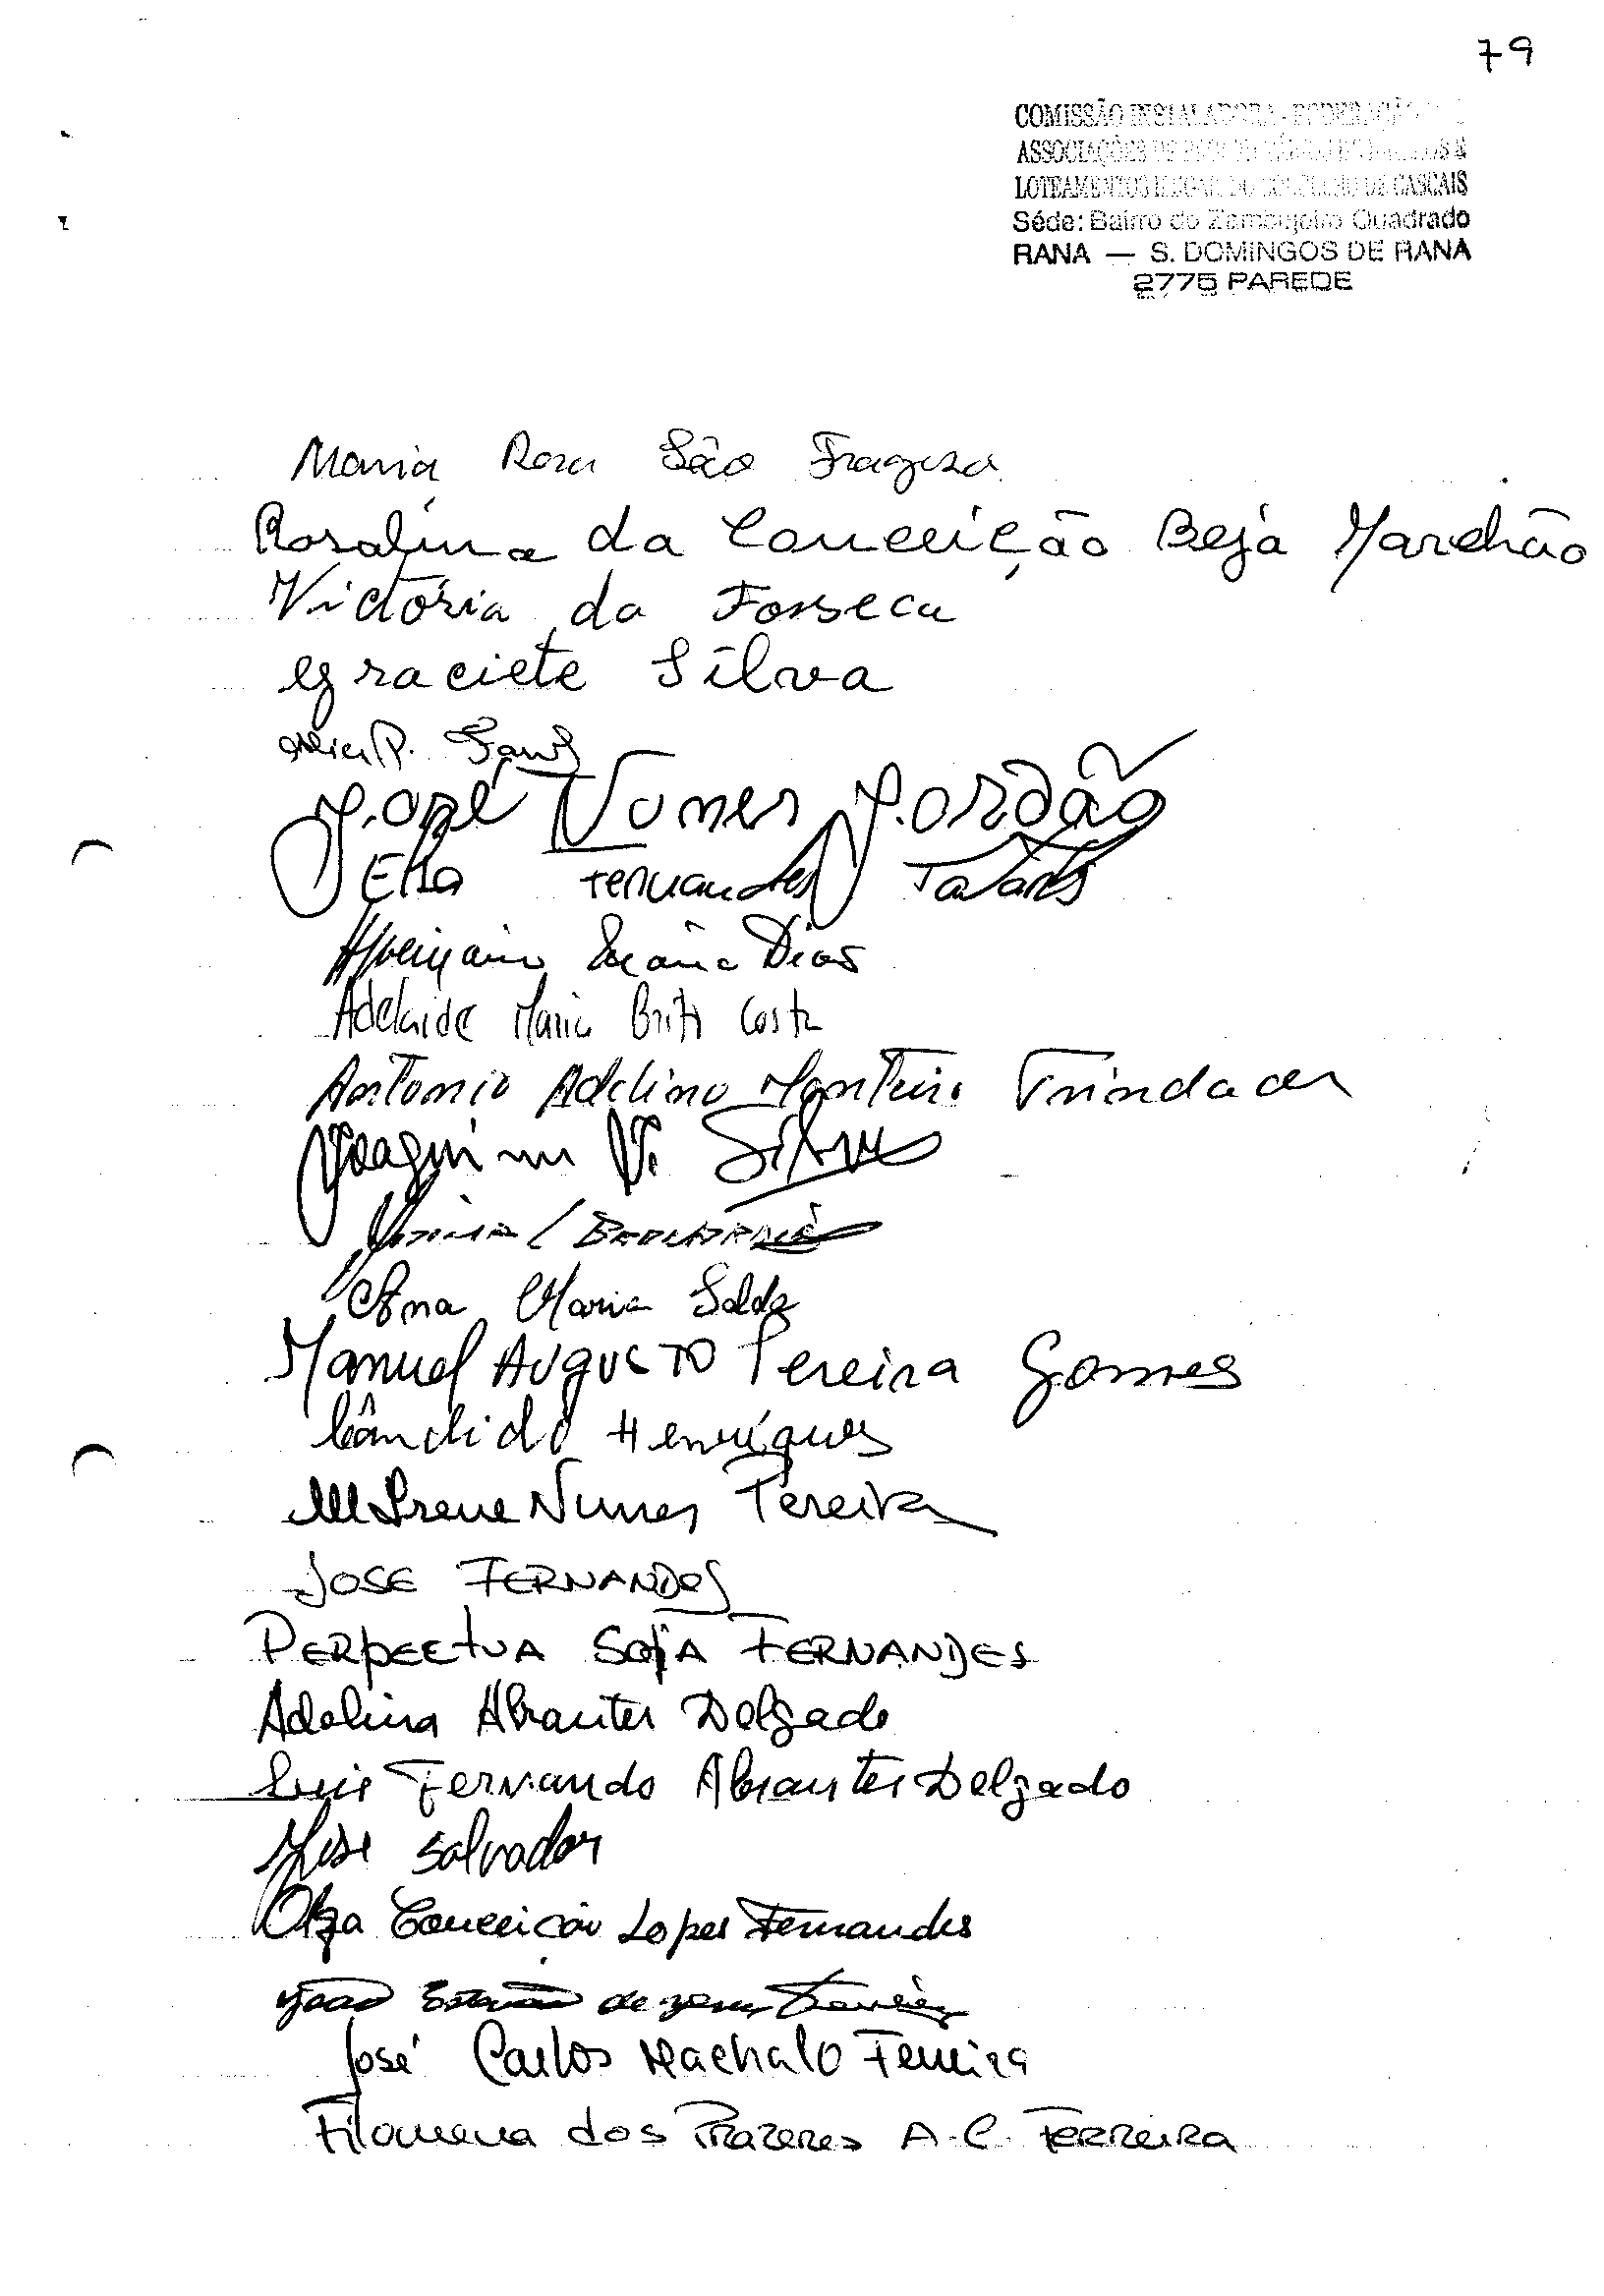 79
COMISSÃO INSTALADORA - FEDERAÇÃO
ASSOCIAÇÕES DE
LOTEAMENTOS ILEGAIS DO CONCELHO DE CASCAIS
Séde: Bairro do Zambujeiro Quadrado
RANA — S. DOMINGOS DE RANA
2775 PAREDE
Maria Rosa São Fragoso
Rosalina da Conceição Beja Marchão
Victória da Fonseca
Graciete Silva
José Nunes Jordão
Elsa Fernandes Tavares
Dias
Adelaide Maria Brito Costa
Antonio Adelino Monteiro Trindade
Joaquim V. Silva
Ana Maria
Manuel AUgUSTO Pereira Gomes
Cândido Henriques
M Irene Nunes Pereira
JOSE FERNANDES
PERPECTUA SOfiA FERNANDES
Adelina Abrantes Delgado
Luis Fernando Abrantes Delgado
José Salvador
Olga Conceição Lopes Fernandes
João de
José Carlos Machado Ferreira
Filomena dos PRazeRes A. C. FeRReiRa